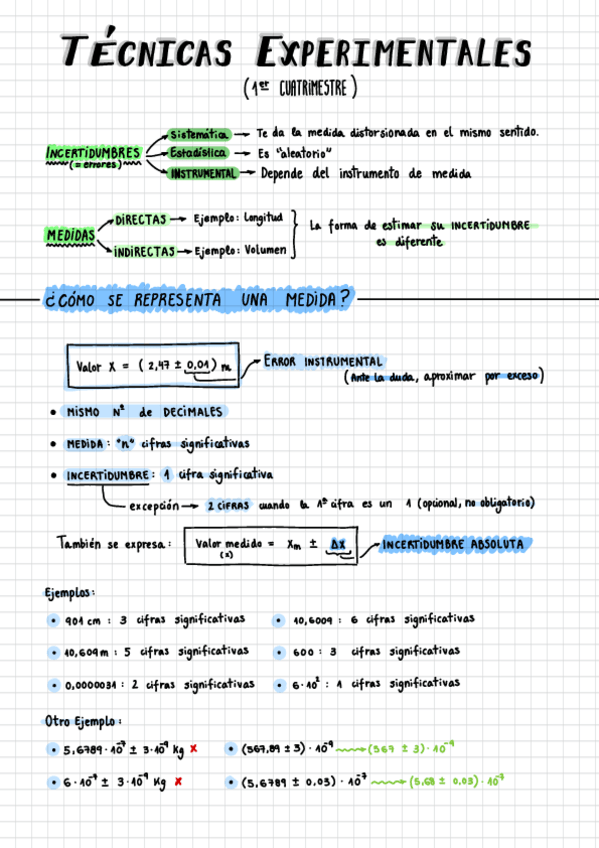 TÉCNICAS EXPERIMENTALES
(1er CUATRIMESTRE)
Sistemática → Te da la medida distorsionada en el mismo sentido.
INCERTIDUMBRES (= errores) Estadística → Es "aleatorio"
INSTRUMENTAL → Depende del instrumento de medida
MEDIDAS
DIRECTAS → Ejemplo: Longitud
INDIRECTAS → Ejemplo: Volumen
La forma de estimar su INCERTIDUMBRE
es diferente
¿CÓMO SE REPRESENTA UNA MEDIDA?
Valor X = (2,47 ± 0,01) m → ERROR INSTRUMENTAL
(Ante la duda, aproximar por exceso)
• MISMO Nº de DECIMALES
• MEDIDA: "n" cifras significativas
• INCERTIDUMBRE: 1 cifra significativa
excepción → 2 CIFRAS cuando la 1ª cifra es un 1 (opcional, no obligatorio)
También se expresa: Valor medido = Xm ± ΔX → INCERTIDUMBRE ABSOLUTA
(x)
Ejemplos:
• 901 cm : 3 cifras significativas
• 10,6009 : 6 cifras significativas
• 10,609 m : 5 cifras significativas
• 600 : 3 cifras significativas
• 0,0000031 : 2 cifras significativas
• 6·10² : 1 cifras significativas
Otro Ejemplo:
• 5,6789·10⁻⁷ ± 3·10⁻⁹ Kg x
• (567,89 ± 3)·10⁻⁹ → (567 ± 3)·10⁻⁹
• 6·10⁻⁷ ± 3·10⁻⁹ Kg x
• (5,6789 ± 0,03)·10⁻⁷ → (5,68 ± 0,03)·10⁻⁷